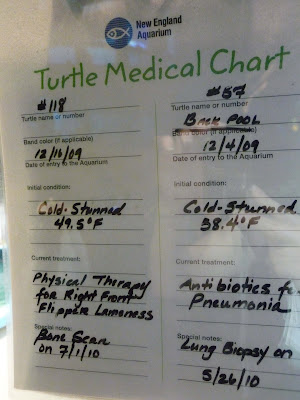 New England
Aquarium
Turtle Medical Chart
#118
Turtle name or number
Band color (if applicable)
12/16/09
Date of entry to the Aquarium
Initial condition:
Cold-Stunned
49.5°F
Current treatment:
Physical Therapy
for Right Front
Flipper Lameness
Special notes:
Bone Scan
on 7/1/10
#57
Turtle name or number
Back Pool
Band color (if applicable)
12/4/09
Date of entry to the Aquarium
Initial condition:
Cold-Stunned
Current treatment:
Antibiotics
Pneumonia
Special notes:
Lung Biopsy on
5/26/10